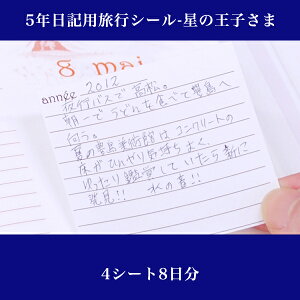 5年日記用旅行シール-星の王子さま
8 mai
année 2012
夜行バスで高松。
朝一でうどんを食べて豊島へ
向う。
夏の豊島美術館はコンクリートの
床がひんやり気持ち良く、
ゆったり鑑賞していたら新たに
発見!! 水の音!!
4シート8日分